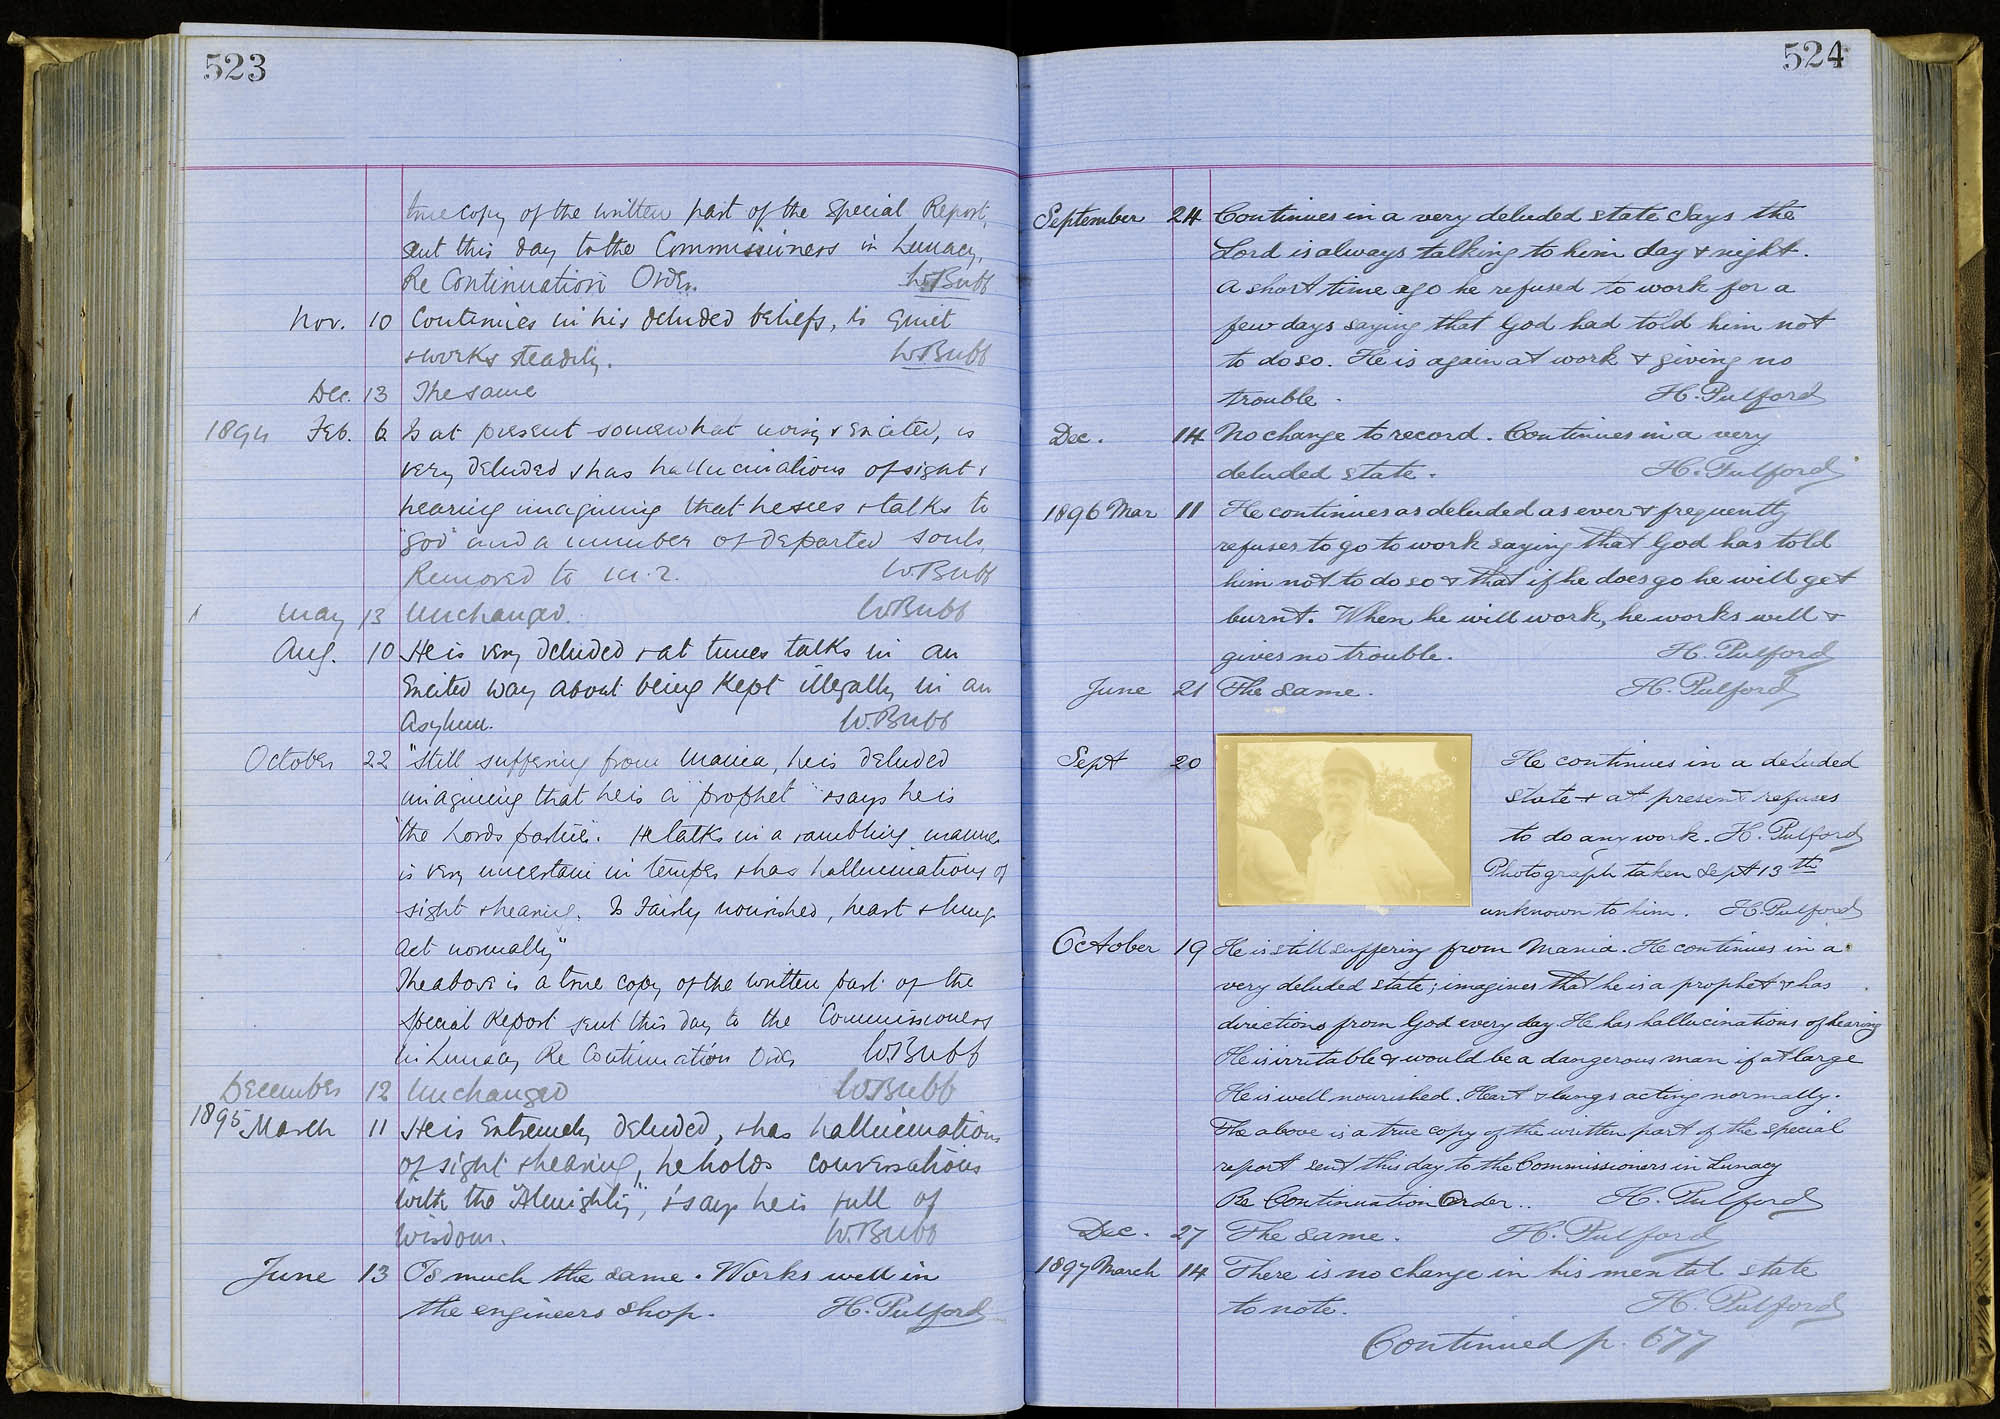 523
true copy of the written part of the Special Report,
sent this day to the Commissioners in Lunacy,
Re Continuation Order. W. Bubb
Nov. 10 Continues in his deluded beliefs, is quiet
& works steadily. W Bubb
Dec. 13 The same
1894 Feb. 6 Is at present somewhat noisy & excited, is
very deluded & has hallucinations of sight &
hearing imagining that he sees & talks to
"God" and a number of departed souls.
Removed to M. 2. W. Bubb
May 13 Unchanged. W Bubb
Aug. 10 He is very deluded & at times talks in an
excited way about being kept illegally in an
Asylum. W. Bubb
October 22 "Still suffering from Mania, he is deluded
imagining that he is a "prophet" & says he is
"the Lords . He talks in a rambling manner
is very uncertain in temper & has hallucinations of
sight & hearing. Is fairly nourished, heart & lungs
act normally"
The above is a true copy of the written part of the
Special Report sent this day to the Commissioners
in Lunacy Re Continuation Order W. Bubb
December 12 Unchanged W. Bubb
1895 March 11 He is extremely deluded, & has hallucinations
of sight & hearing, he holds conversations
with the "Almighty", & says he is full of
wisdom. W. Bubb
June 13 Is much the same. Works well in
the engineers shop. H. Pulford
524
September 24 Continues in a very deluded state Says the
Lord is always talking to him day & night.
A short time ago he refused to work for a
few days saying that God had told him not
to do so. He is again at work & giving no
trouble. H. Pulford
Dec. 14 No change to record. Continues in a very
deluded state. H. Pulford
1896 Mar 11 He continues as deluded as ever & frequently
refuses to go to work saying that God has told
him not to do so & that if he does go he will get
burnt. When he will work, he works well &
gives no trouble. H. Pulford
June 21 The same. H. Pulford
Sept 20 He continues in a deluded
state & at present refuses
to do any work. H. Pulford
Photograph taken Sept 13th
unknown to him. H. Pulford
October 19 He is still suffering from Mania. He continues in a
very deluded state; imagines that he is a prophet & has
directions from God every day He has hallucinations of hearing
He is irritable & would be a dangerous man if at large
He is well nourished. Heart & lungs acting normally.
The above is a true copy of the written part of the special
report sent this day to the Commissioners in Lunacy
Re Continuation Order.. H. Pulford
Dec. 27 The same. H. Pulford
1897 March 14 There is no change in his mental state
to note. H. Pulford
Continued p. 677